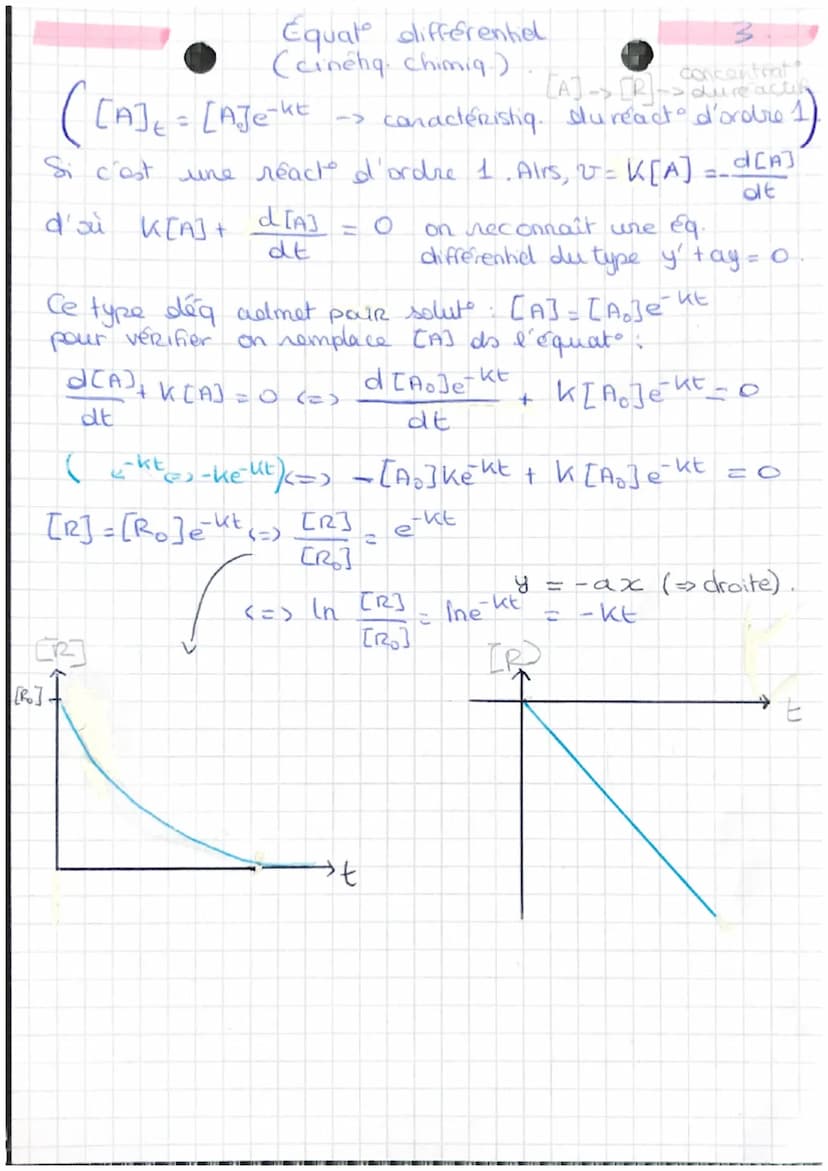 Équat° différentiel
3.
(cinétiq. chimiq.)
[A] -> [R] -> concentrat° du réactif
([A]t = [A₀]e^-kt -> caractéristiq. du réact° d'ordre 1)
Si c'est une réact° d'ordre 1. Alrs, v = K[A] = - d[A]/dt
d'où K[A] + d[A]/dt = 0 on reconnaît une éq.
différentiel du type y' + ay = 0.
Ce type d'éq admet pair solut° : [A] = [A₀]e^-kt
pour vérifier on remplace [A] ds l'équat° :
d[A]/dt + K[A] = 0 <=> d[A₀]e^-kt/dt + K[A₀]e^-kt = 0
(e^-kt => -ke^-kt) <=> -[A₀]Ke^-kt + K[A₀]e^-kt = 0
[R] = [R₀]e^-kt <=> [R]/[R₀] = e^-kt
y = -ax (=> droite).
<=> ln [R]/[R₀] = lne^-kt = -kt
[R]
[R₀]
t
[R]
t